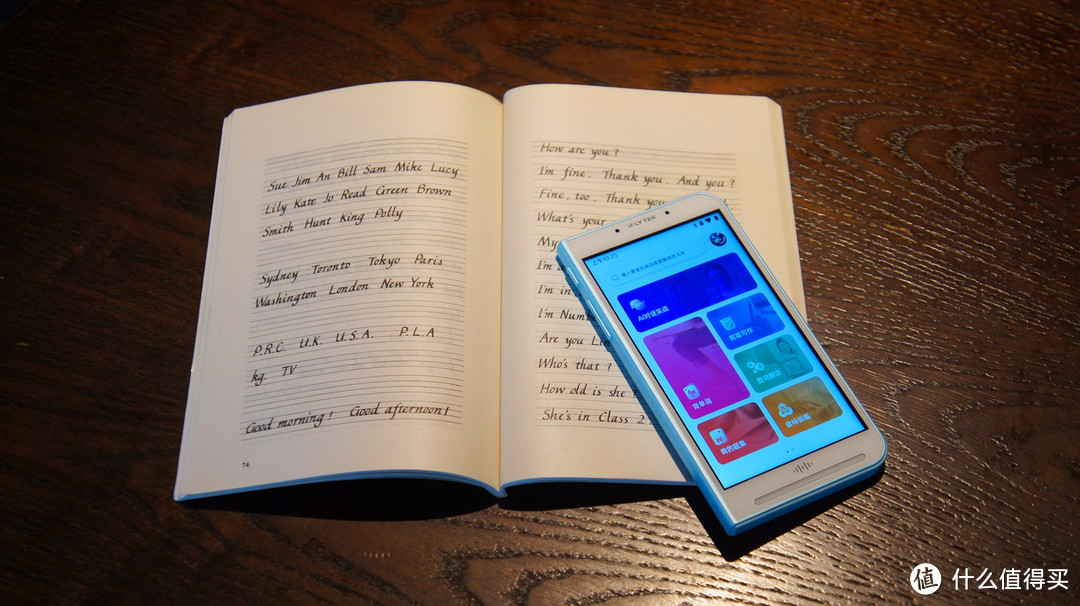 Sue Jim An Bill Sam Mike Lucy
Lily Kate Jo Read Green Brown
Smith Hunt King Polly
Sydney Toronto Tokyo Paris
Washington London New York
P.R.C. U.K. U.S.A. P.L.A
kg TV
Good morning! Good afternoon!
74
How are you?
I'm fine. Thank you. And you?
Fine, too. Thank you
What's your
My
I'm
I'm in
I'm
Are you
Who's that?
How old is she?
She's in Class 2
iFLYTEK
上午10:25
AI对话实战
智能写作
背单词
查词翻译
我的题集
音标训练
值 什么值得买